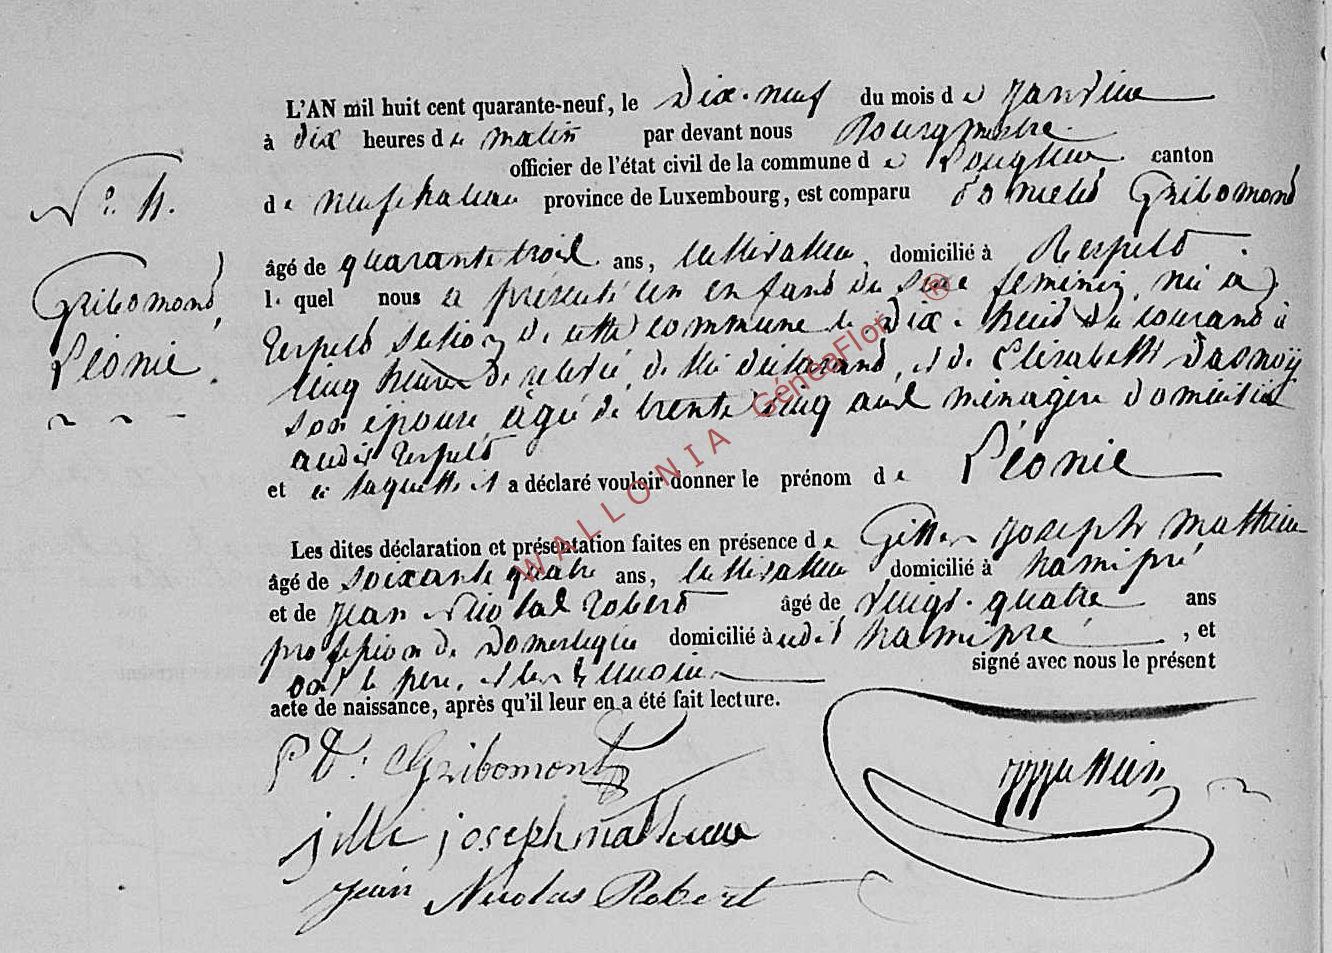 L'AN mil huit cent quarante-neuf, le Dix-neuf du mois de Janvier
à dix heures de matin par devant nous Bourgmestre
officier de l'état civil de la commune de Longlier canton
de neufchateau province de Luxembourg, est comparu Gribomond
N° 4.
âgé de quarante trois ans, cultivateur, domicilié à Respelt
lequel nous a présenté un enfand du sexe feminin, née à
Gribomond,
Léonie
Respelt section de cette commune le dix-huit du courand à
cinq heures de relevée, de lui déclarand, et de Elisabeth Dasnoÿ
son épouse, agée de trente cinq ans ménagère domiciliée
audit Respelt
et à laquelle il a déclaré vouloir donner le prénom de Léonie
Les dites déclaration et présentation faites en présence de Gille Joseph Mathieu
âgé de soixante quatre ans, cultivateur domicilié à hamipré
et de Jean Nicolas Robert âgé de vingt-quatre ans
profession de Domestique domicilié à udit hamipré, et
ont le père, et les témoins signé avec nous le présent
acte de naissance, après qu'il leur en a été fait lecture.
Gribomont
jille joseph mathieu
Jean Nicolas Robert
WALLONIA GénéaFlor ®